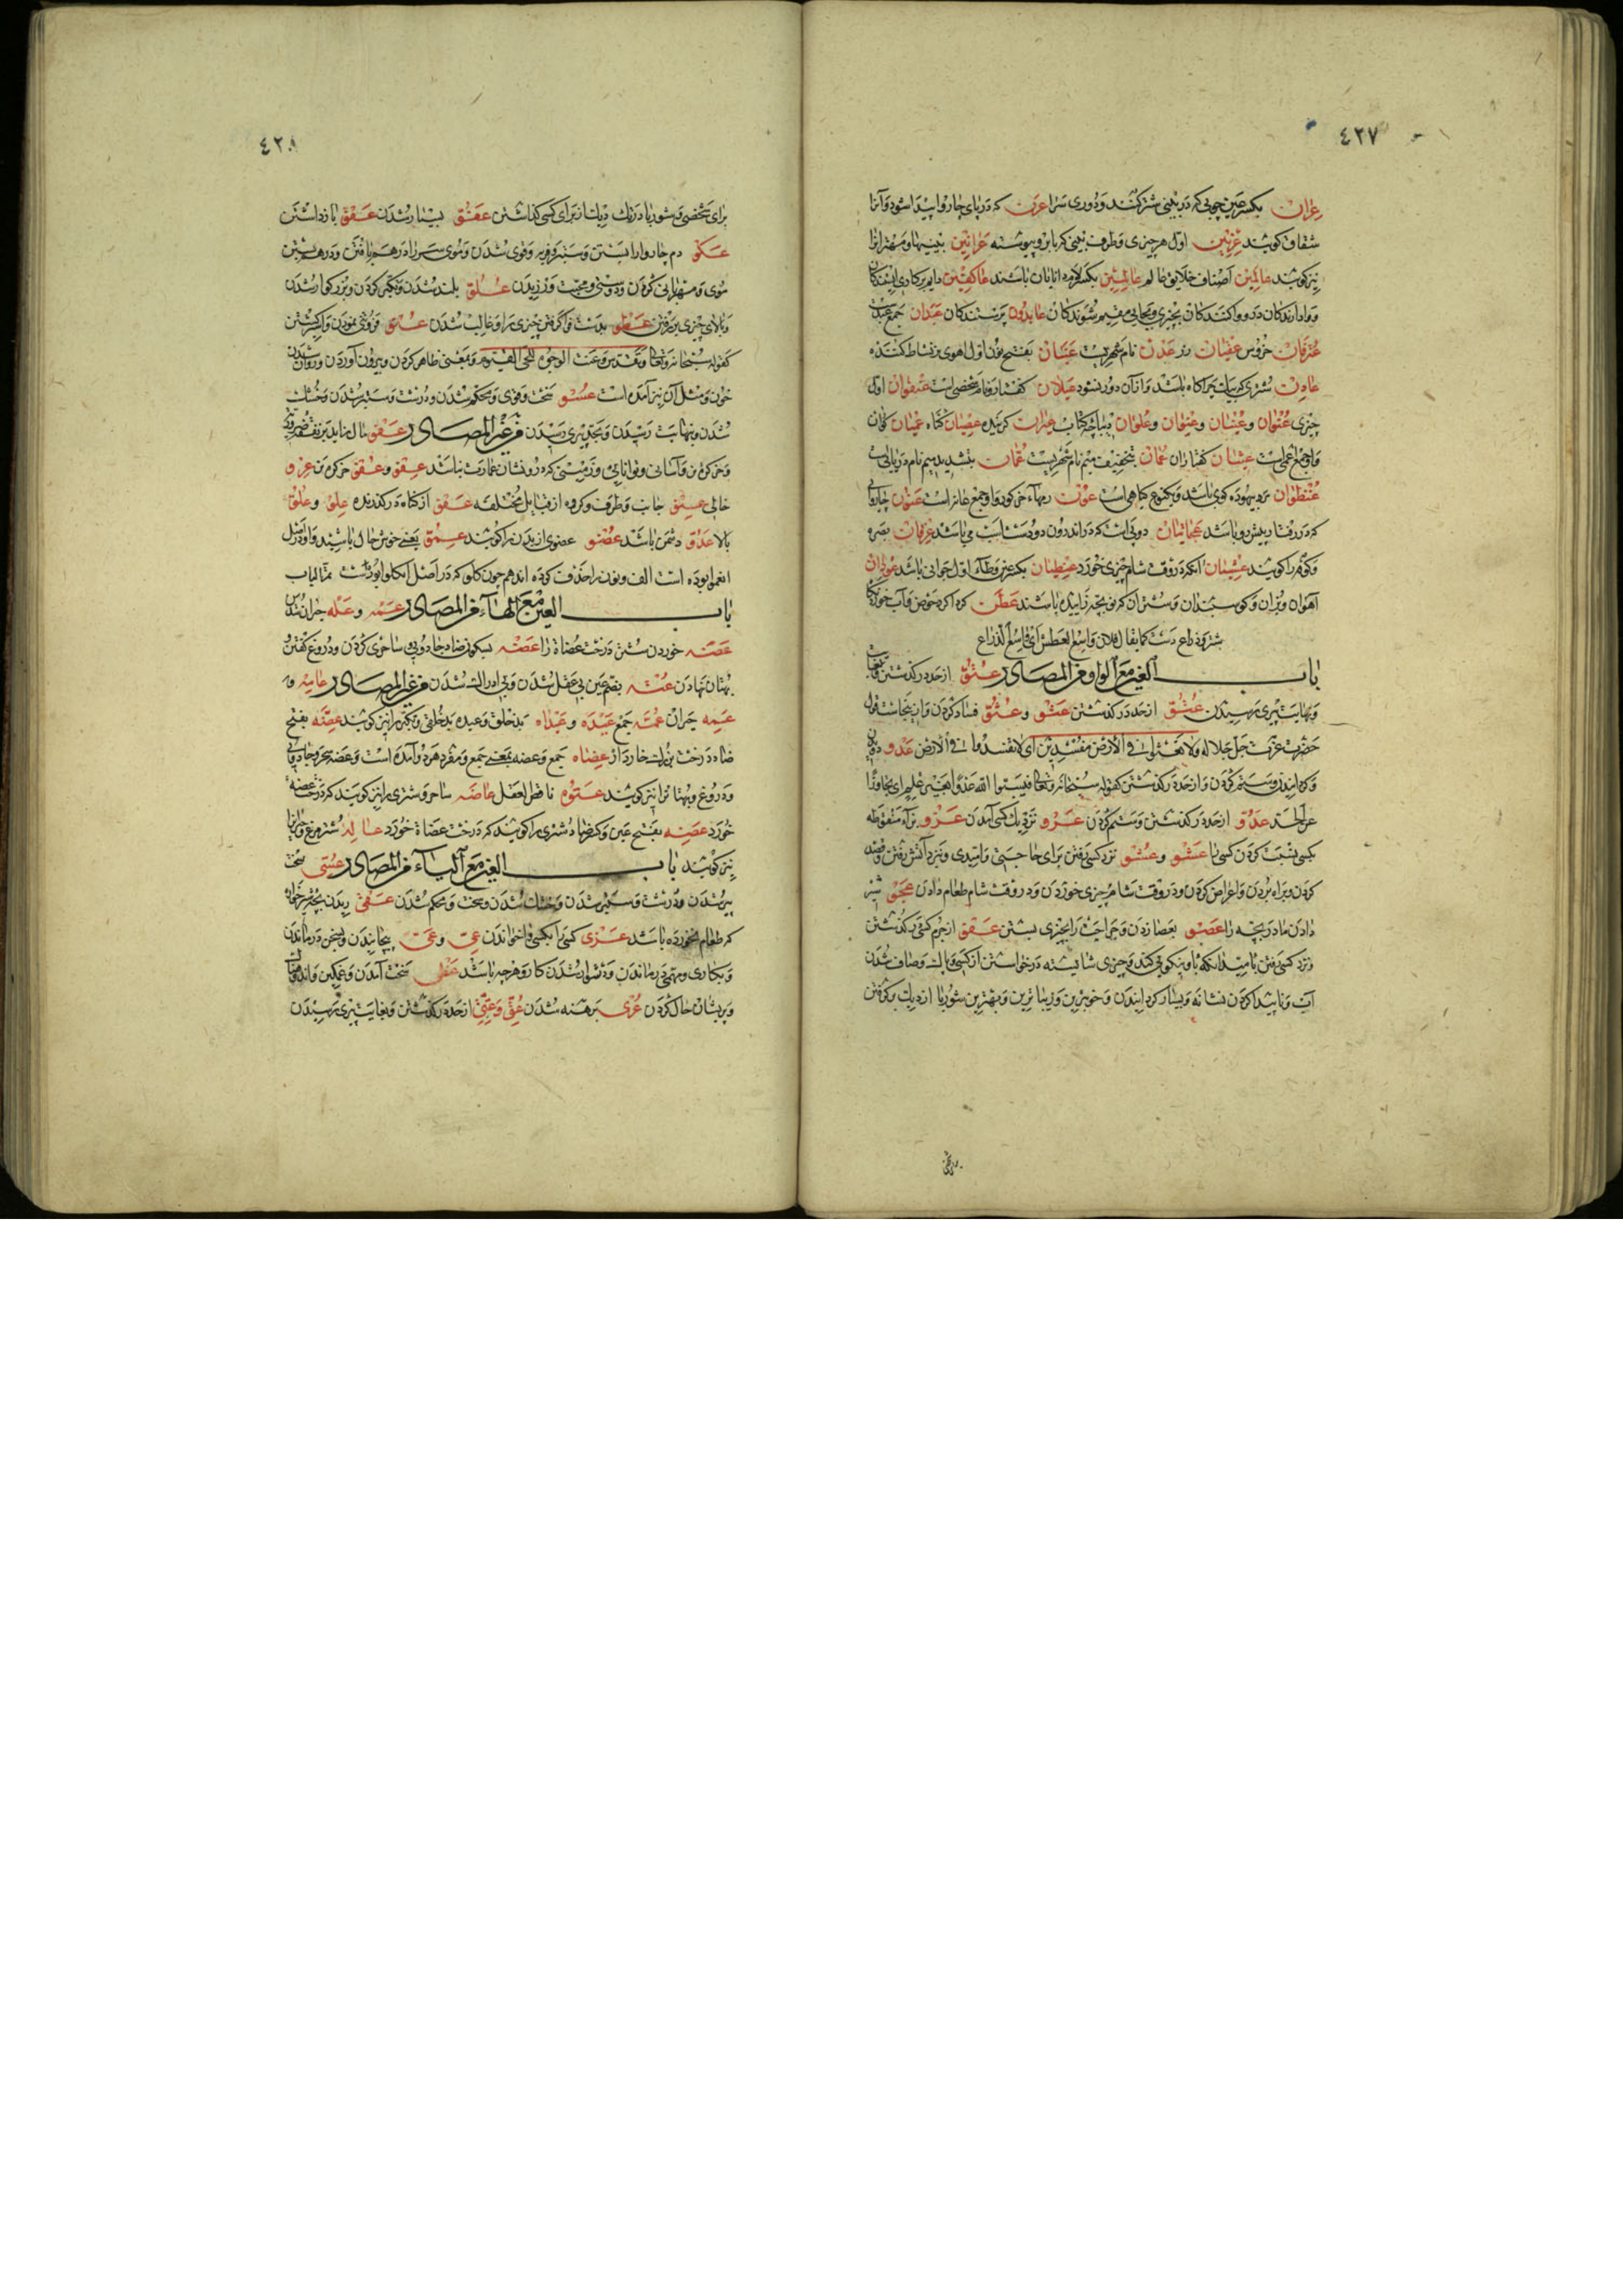 ٤٢٧
عران بکسر عین چوبی که در بینی شتر کنند و دوری سرا عرن که در پای چاروا پیدا شود و آنرا
شقاق گویند عرنین اول هر چیزی و طرف بینی که با برو پیوسته عرانین بینیها و مهترانرا
نیز گویند عالمین اصناف خلایق عالم عالمین بکسر لام دانایان باشند عاکفین دایم بر کاری
عابدون پرستندگان عبدان جمع عبدست
عترفان خروس عفتان عدن نام شهریست عنبان بفتح نون اول اهوی بنشاط
عادن شتری که بیک چراگاه باشد و از آن دور نشود عیلان کفتار و نام شخصی است عنفوان اول
چیزی عنوان و عنیان و عنوان و علوان دیباچه کتاب عصیان گناه عمیان کوران
و او جمع اعمی است عثیان کفتاران عمان بتخفیف میم نام شهریست عمان بتشدید میم نام دریائی است
عنظوان مرد بیهوده گوی باشد و یکنوع گیاهی است
که در رفتار پیش رو باشد عجمانیان
و کوفه را گویند عشیان آنکه در وقت شام چیزی خورد
آهوان و بزان و گوسپندان و شتران که نو بچه زاییده باشند عطن کرداکرد حوض و آب خوردنگاه
شتر و ذراع دست کما یقال فلان واسع العطن ای واسع الذراع
باب العین مع الواو من المصادر عتو از حد در گذشتن
و بنهایت پیری رسیدن عتو از حد در گذشتن عثو و عثو فساد کردن و اینجاست قول
حضرت عزت جل جلاله ولا تعثوا فی الارض مفسدین ای لا تفسدوا فی الارض عدو دویدن
و ستم کردن و از حد در گذشتن کقوله سبحانه وتعالی فیسبوا الله عدوا بغیر علم ای تجاوزا
عن الحد عدو از حد در گذشتن و ستم کردن عرو نزدیک کسی آمدن عزو بزاء منقوطه
بکسی نسبت کردن کسی را عشو و عشو نزد کسی رفتن برای حاجتی و امیدی و نزد آتش رفتن و قصد
کردن و براه بردن و اعراض کردن و در وقت شام چیزی خوردن و در وقت شام طعام دادن عجو شیر
دادن مادر بچه را عصو بعصا زدن و جراحت را بچیزی بستن عفو از جرم کسی در گذشتن
و نزد کسی رفتن بامید آنکه با و نیکویی کند و چیزی شایسته درخواستن از کسی و پاک و صاف شدن
آب و ناپیدا کردن نشانه و بسیار گردانیدن و خوبترین و زیباترین و بهترین شوربا از دیک برگرفتن
برای
٤٢٨
برای شخصی و شوربا در تک دیک از برای کسی گذاشتن عفو بسیار شدن عقو باز داشتن
عکو دم چاروا را بستن و ستبر و فربه و قوی شدن و موی سر را در هم بافتن و در هم بستن
موی و مهربانی کردن و دوستی و محبت ورزیدن علو بلند شدن و تکبر کردن و بزرگوار شدن
و بالای چیزی بر رفتن عطو بدست فراگرفتن چیزی را و غالب شدن عنو فروتنی نمودن
کقوله سبحانه وتعالی وتقدس وعنت الوجوه للحی القیوم و بمعنی ظاهر کردن و بیرون آوردن و روان شدن
خون و مثل آن نیز آمده است عسو سخت و قوی و محکم شدن و درشت و ستبر شدن و خشک
شدن و بنهایت رسیدن و بحد پیری رسیدن من غیر المصادر عفو مال
و خر کره و آسانی و توانایی و زمینی که درو نشان عمارت نباشد عفو و عفو خر کره
خالی عنو جانب و طرف و گروه از قبایل مختلفه عفو از گناه در گذرنده علو و علو
بالا عدو دشمن باشد عضو عضوی از بدن را گویند
است الف و نون را حذف کرده اند هم چون
باب العین مع الهاء من المصادر عمه و عله حیران شدن
عضه خوردن شتر درخت عضاة را عضه بسکون ضاد جادویی ساحری کردن و دروغ گفتن و
بهتان نهادن عته بضم عین بی عقل شدن و بی ادراک شدن من غیر المصادر عامه و
عمه حیران عمه جمع عیده و عیداه بدخلق و عیده بدخلقی و تکبر را نیز گویند عضه بفتح
ضاد درخت بزرگ خاردار عضاه جمع و عضه بمعنی جمع و مفرد هر دو آمده است و عضه سحر و جادویی
و دروغ و بهتان را نیز گویند عتوه ناقص العقل عاضه ساحر و شتری را نیز گویند که درخت عضه
خورد عضه بفتح عین و کسر ضاد شتری را گویند که درخت عضاة خورد عاله شتر مرغ
نیز گویند باب العین مع الیاء من المصادر عسی سخت
پیر شدن و درشت و ستبر شدن و خشک شدن و سخت و محکم شدن عقی ریدن بچه
که طعام نخورده باشد عزی کسی را بکسی واخواندن عی و عی پیچانیدن و بسخن درماندن
و بکاری و مهمی درماندن و دشوار شدن کار و هر چه باشد سخت آمدن و غمگین
و پریشان حال کردن عری برهنه شدن عتی و عتی از حد در گذشتن و بغایت پیری رسیدن